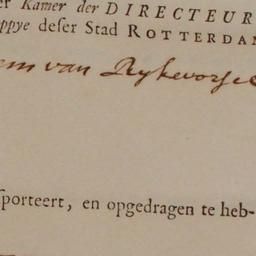 er Kamer der DIRECTEUR
ppye deser Stad ROTTERDAM
em van Rykevorse
sporteert, en opgedragen te heb-